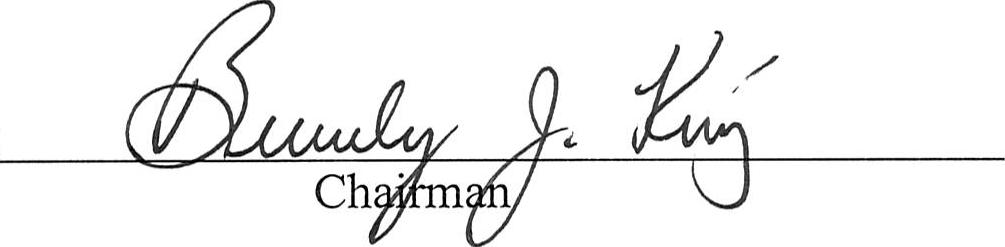 Beverly J. King
Chairman